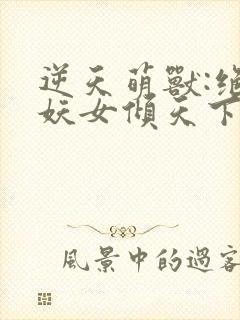 逆天萌獸:絕
妖女傾天下
風景中的過客